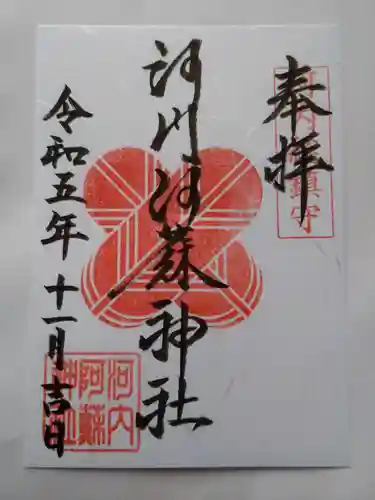 奉拝
鎮守
河内阿蘇神社
令和五年 十一月吉日
河内
阿蘇
神社